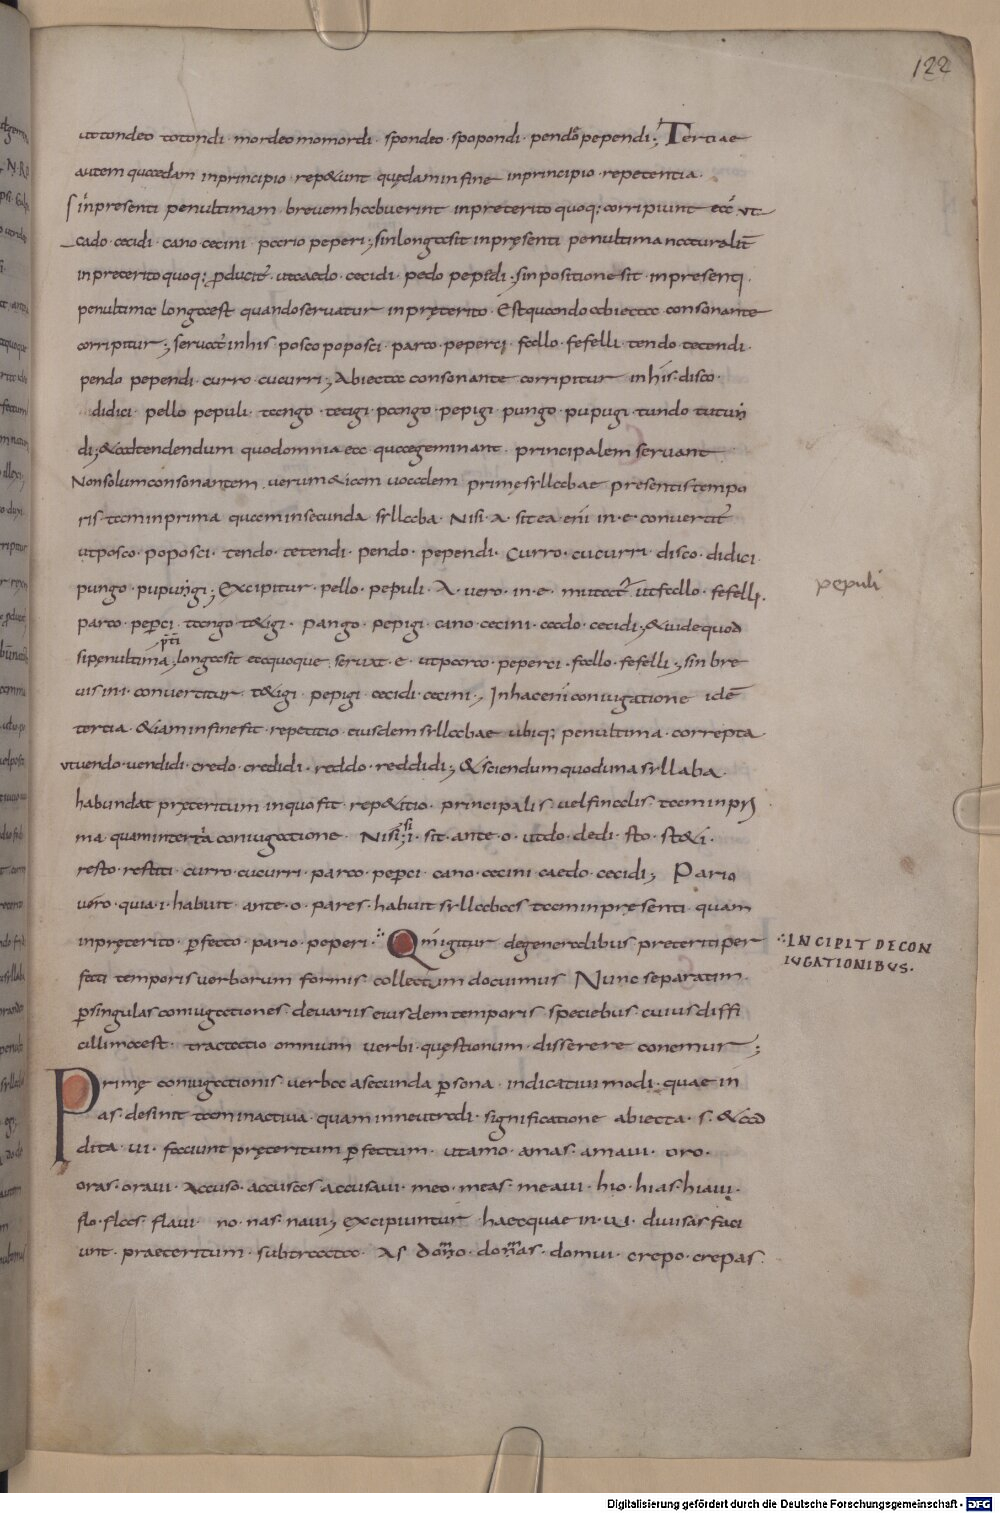 122
uttondeo totondi · mordeo momordi · spondeo · spopondi · pendo pependi ; Tertiae
autem quaedam in principio · repetunt quędam in fine in principio · repetentia ·
Si in presenti penultimam breuem habuerint in preterito quoq; corripiunt eā ut
cado · cecidi · cano cecini pario peperi ; sin longa sit in pręsenti penultima naturalit̄
in preterito quoq; ꝓducit᷑ · ut caedo · cecidi · pedo pepedi ; sin positione sit in presenti ·
penultima longa est quando seruatur in pręterito · Est quando abiecta consonante
corripitur ; seruat᷑ in his posco poposci · parco · peperci · fallo · fefelli · tendo tetendi ·
pendo pependi · curro · cucurri ; Abiecta consonante corripitur in his · disco ·
didici · pello pepuli · tango · tetigi · pango · pepigi · pungo · pupugi · tundo tutun
di ; & adtendendum quod omnia ea quae geminant · principalem seruant
Non solum consonantem uerum & iam uocalem primę syllabae presentis tempo
ris · tam in prima quam in secunda syllaba · Nisi · a · sit ea eni in · e · conuertit᷑
ut posco · poposci · tendo · tetendi · pendo · pependi · Curro · cucurri · disco · didici
pungo · pupungi ; Excipitur · pello · pepuli · A · uero · in · e · mutat᷑ · ut fallo · fefelli ·
pepuli
parco · peꝑci · tango t&igi · pango · pepigi · cano · cecini · cado · cecidi · & uide quod
si penultima longa sit ea quoque seruat · e · ut parco · peperci · fallo · fefelli ; sin bre
uis in · i · conuertitur t&igi · pepigi · cecidi · cecini ; In hac eni coniugatione idē
tertia · & iam in fine fit · repetitio · eiusdem syllabae ubiq; penultima · correpta
ut uendo · uendidi · credo · credidi · reddo · reddidi ; & sciendum quod una syllaba ·
habundat pręteritum in quo fit · rep&itio · principalis uel finalis · tam in pri
ma quam in tertia coniugatione · Nisi · i · sit · ante · o · ut do · dedi · sto · st&i ·
resto · restiti · curro · cucurri · parco · peꝑci · cano · cecini caedo · cecidi ; Pario
uero · quia · i · habuit · ante · o · pares · habuit syllabas tam in presenti quam
in pręterito · ꝑfecto · pario · peperi · Qm̄ igitur de generalibus preteriti per
∴ INCIPIT DE CON
IUGATIONIBUS ·
fecti temporis uerborum formis · collectam docuimus Nunc separatim
ꝑ singulas coniugationes · de uariis eiusdem temporis speciebus cuius diffi
cillima est · tractatio omnium uerbi · quęstionum · disserere conemur ;
Primę coniugationis · uerba a secunda ꝑsona · indicatiui modi · quae in
as · desinit tam in actiua · quam in neutrali · significatione abiecta · s · & ad
dita · ui · faciunt pręteritum ꝑfectum · ut amo · amas · amaui · oro ·
oras · oraui · Accuso · accusas accusaui · meo · meas · meaui · hio · hias hiaui ·
flo · flas · flaui no · nas · naui ; excipiuntur haec quae in · ui · diuisas faci
unt · praeteritum · subtracta · As domo · domas · domui · crepo · crepas ·
Digitalisierung gefördert durch die Deutsche Forschungsgemeinschaft - DFG